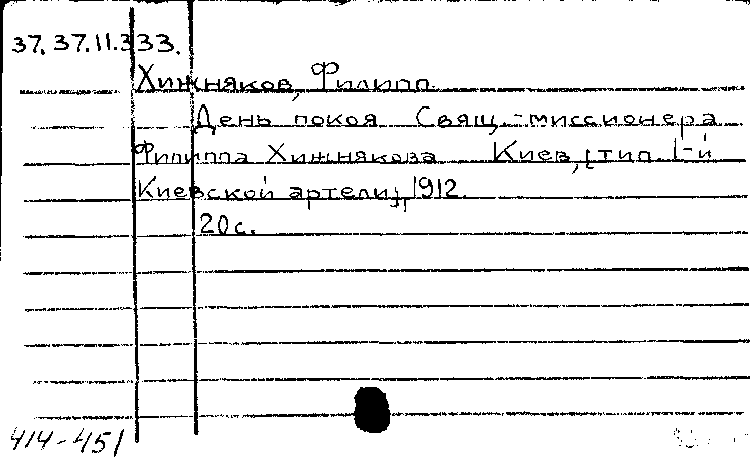 37.37.11.333.
Хижняков, Филипп.
День покоя Свящ.-миссионера
Филиппа Хижнякова Киев, [тип. 1-й
Киевской артели], 1912.
20 с.
414-451